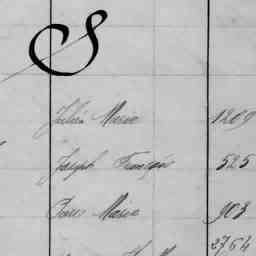 S
Julien Marie 1209
Joseph François 525
Marie 903
2764